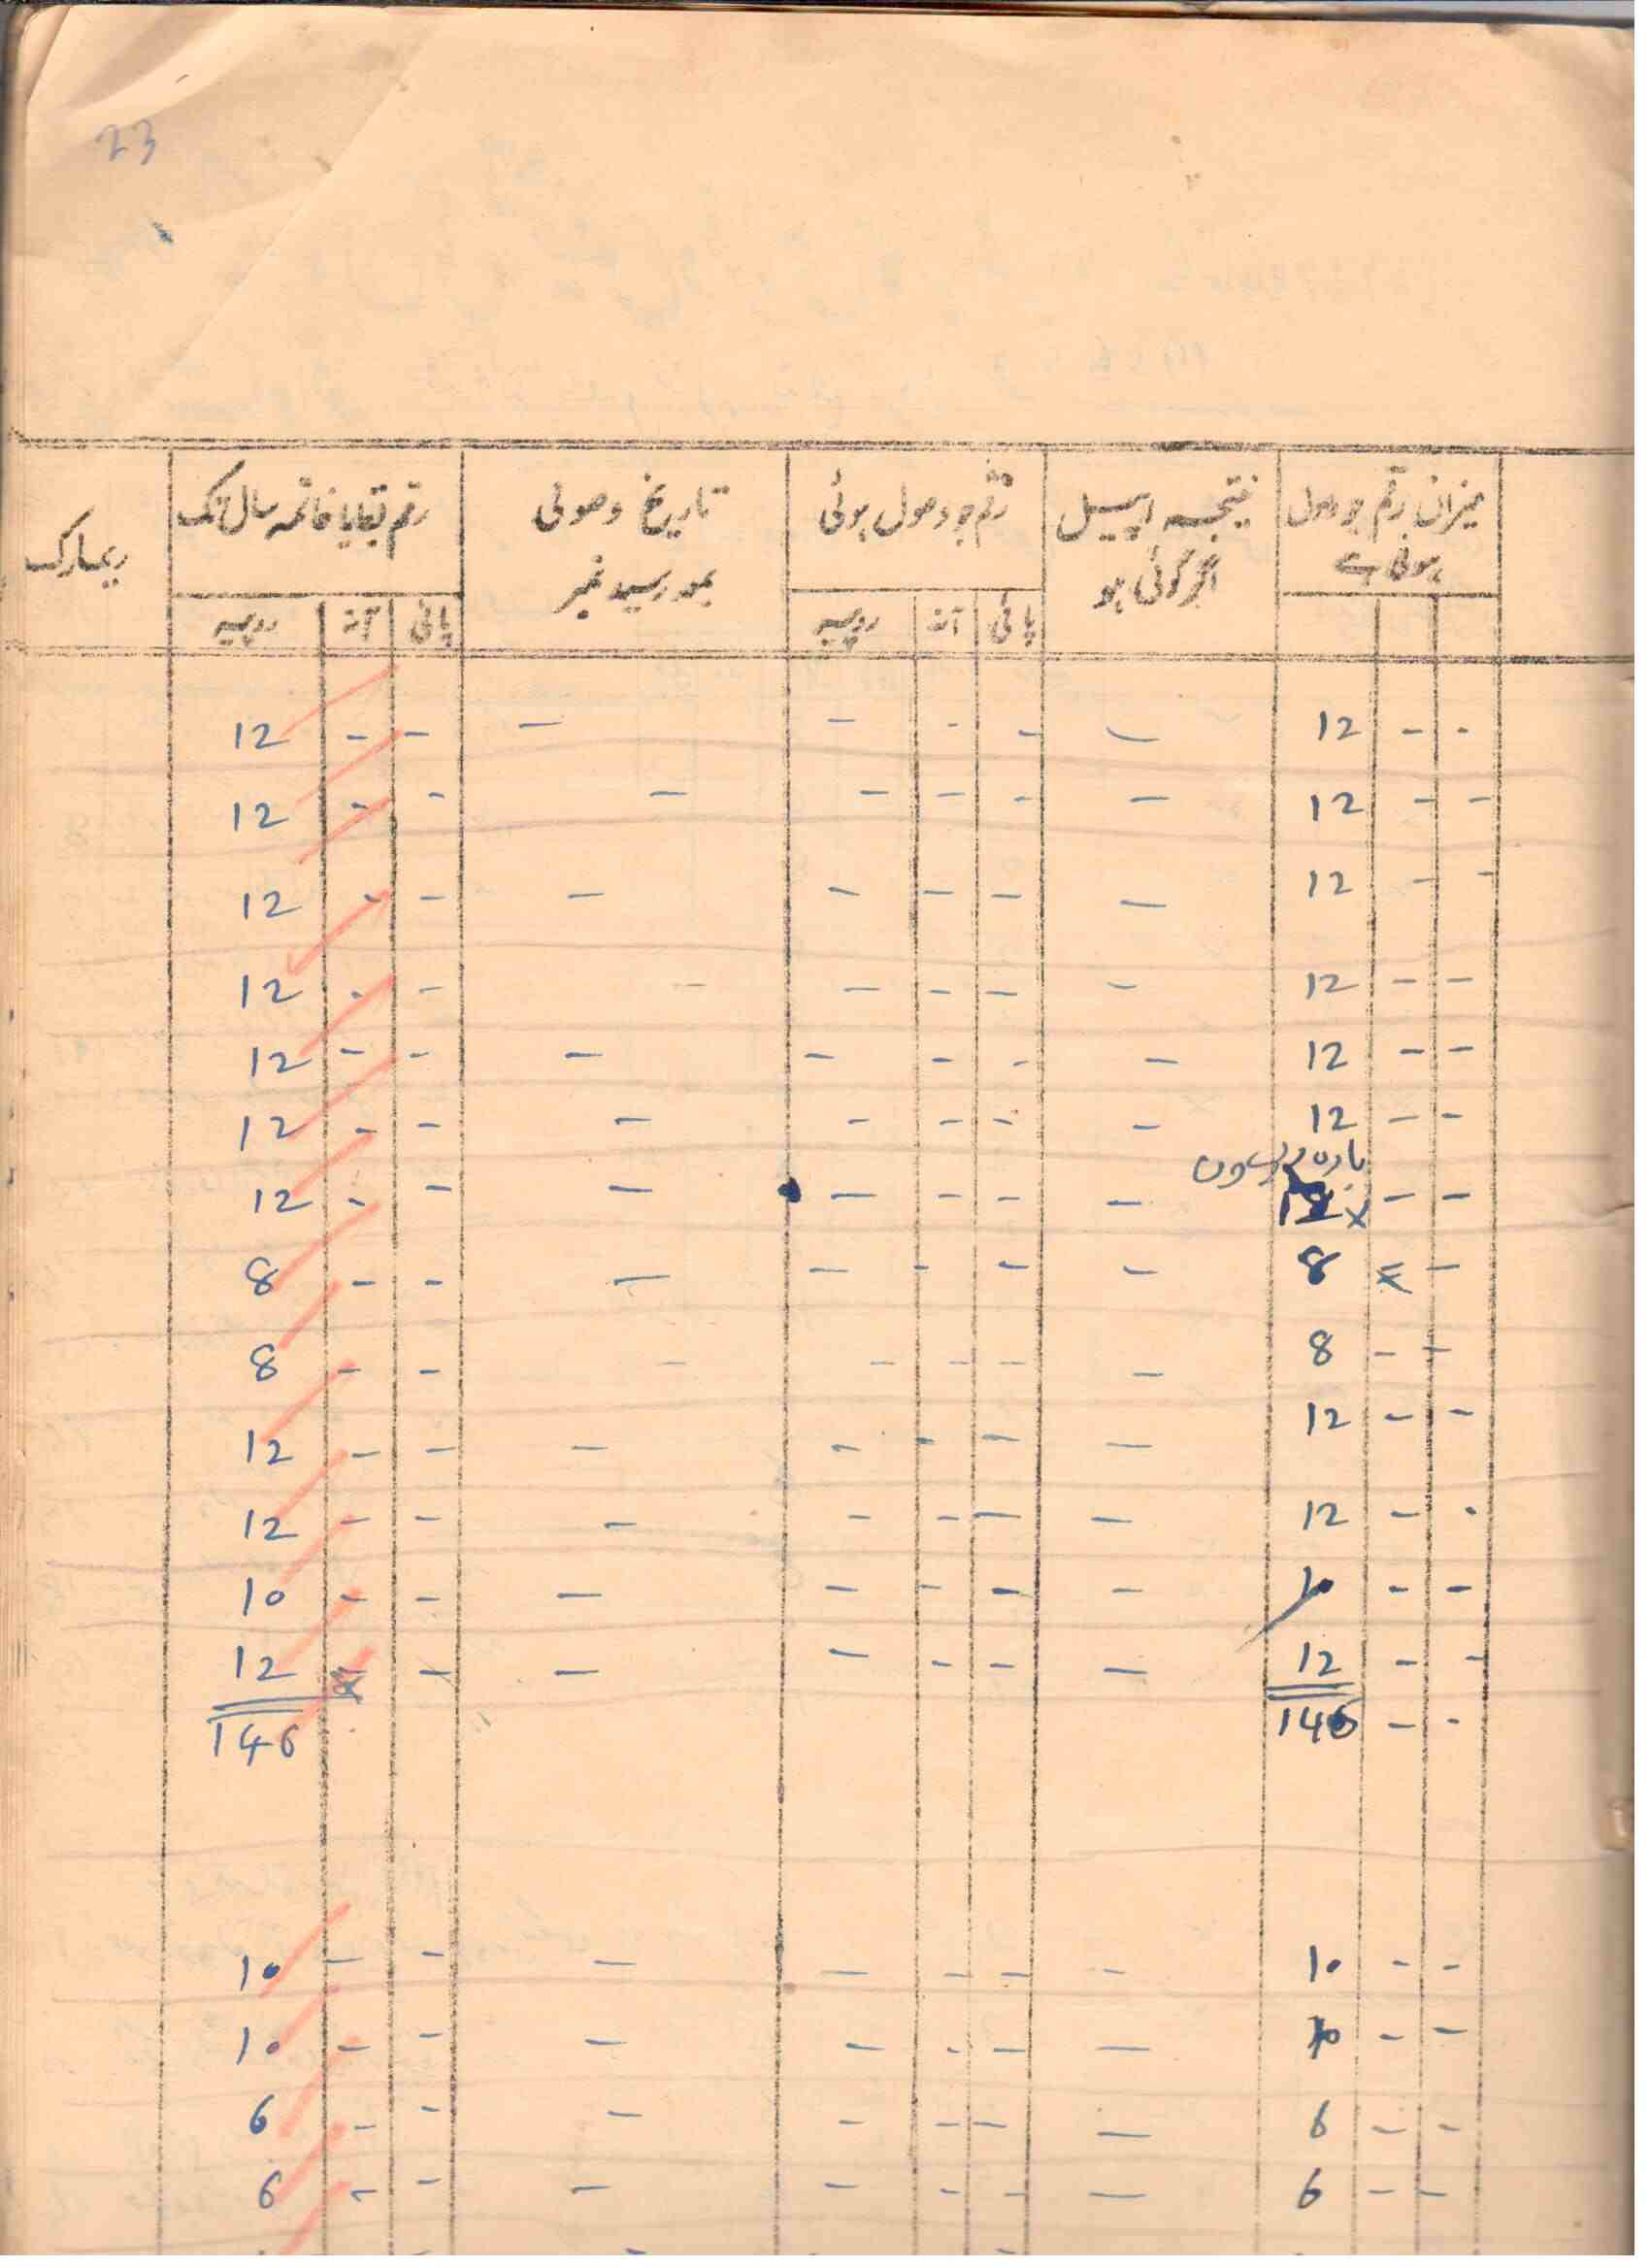 23
میزان رقم جو وصول ہوئی ہے | نتیجہ اپیل اگر کوئی ہو | رقم جو وصول ہوئی | تاریخ وصولی بمعہ رسید نمبر | رقم بقایا خاتمہ سال تک | ریمارک
پائی | آنہ | روپیہ | پائی | آنہ | روپیہ
- - 12 | - | - - - | - | - - 12
- - 12 | - | - - - | - | - - 12
- - 12 | - | - - - | - | - - 12
- - 12 | - | - - - | - | - - 12
- - 12 | - | - - - | - | - - 12
- - 12 | - | - - - | - | - - 12
بارہ
- - 12 x | - | - - - | - | - - 12
- x 8 | - | - - - | - | - - 8
- - 8 | - | - - - | - | - - 8
- - 12 | - | - - - | - | - - 12
- - 12 | - | - - - | - | - - 12
- - 10 | - | - - - | - | - - 10
- - 12 | - | - - - | - | - - 12
- - 146 | 146
- - 10 | - | - - - | - | - - 10
- - 10 | - | - - - | - | - - 10
- - 6 | - | - - - | - | - - 6
- - 6 | - | - - - | - | - - 6